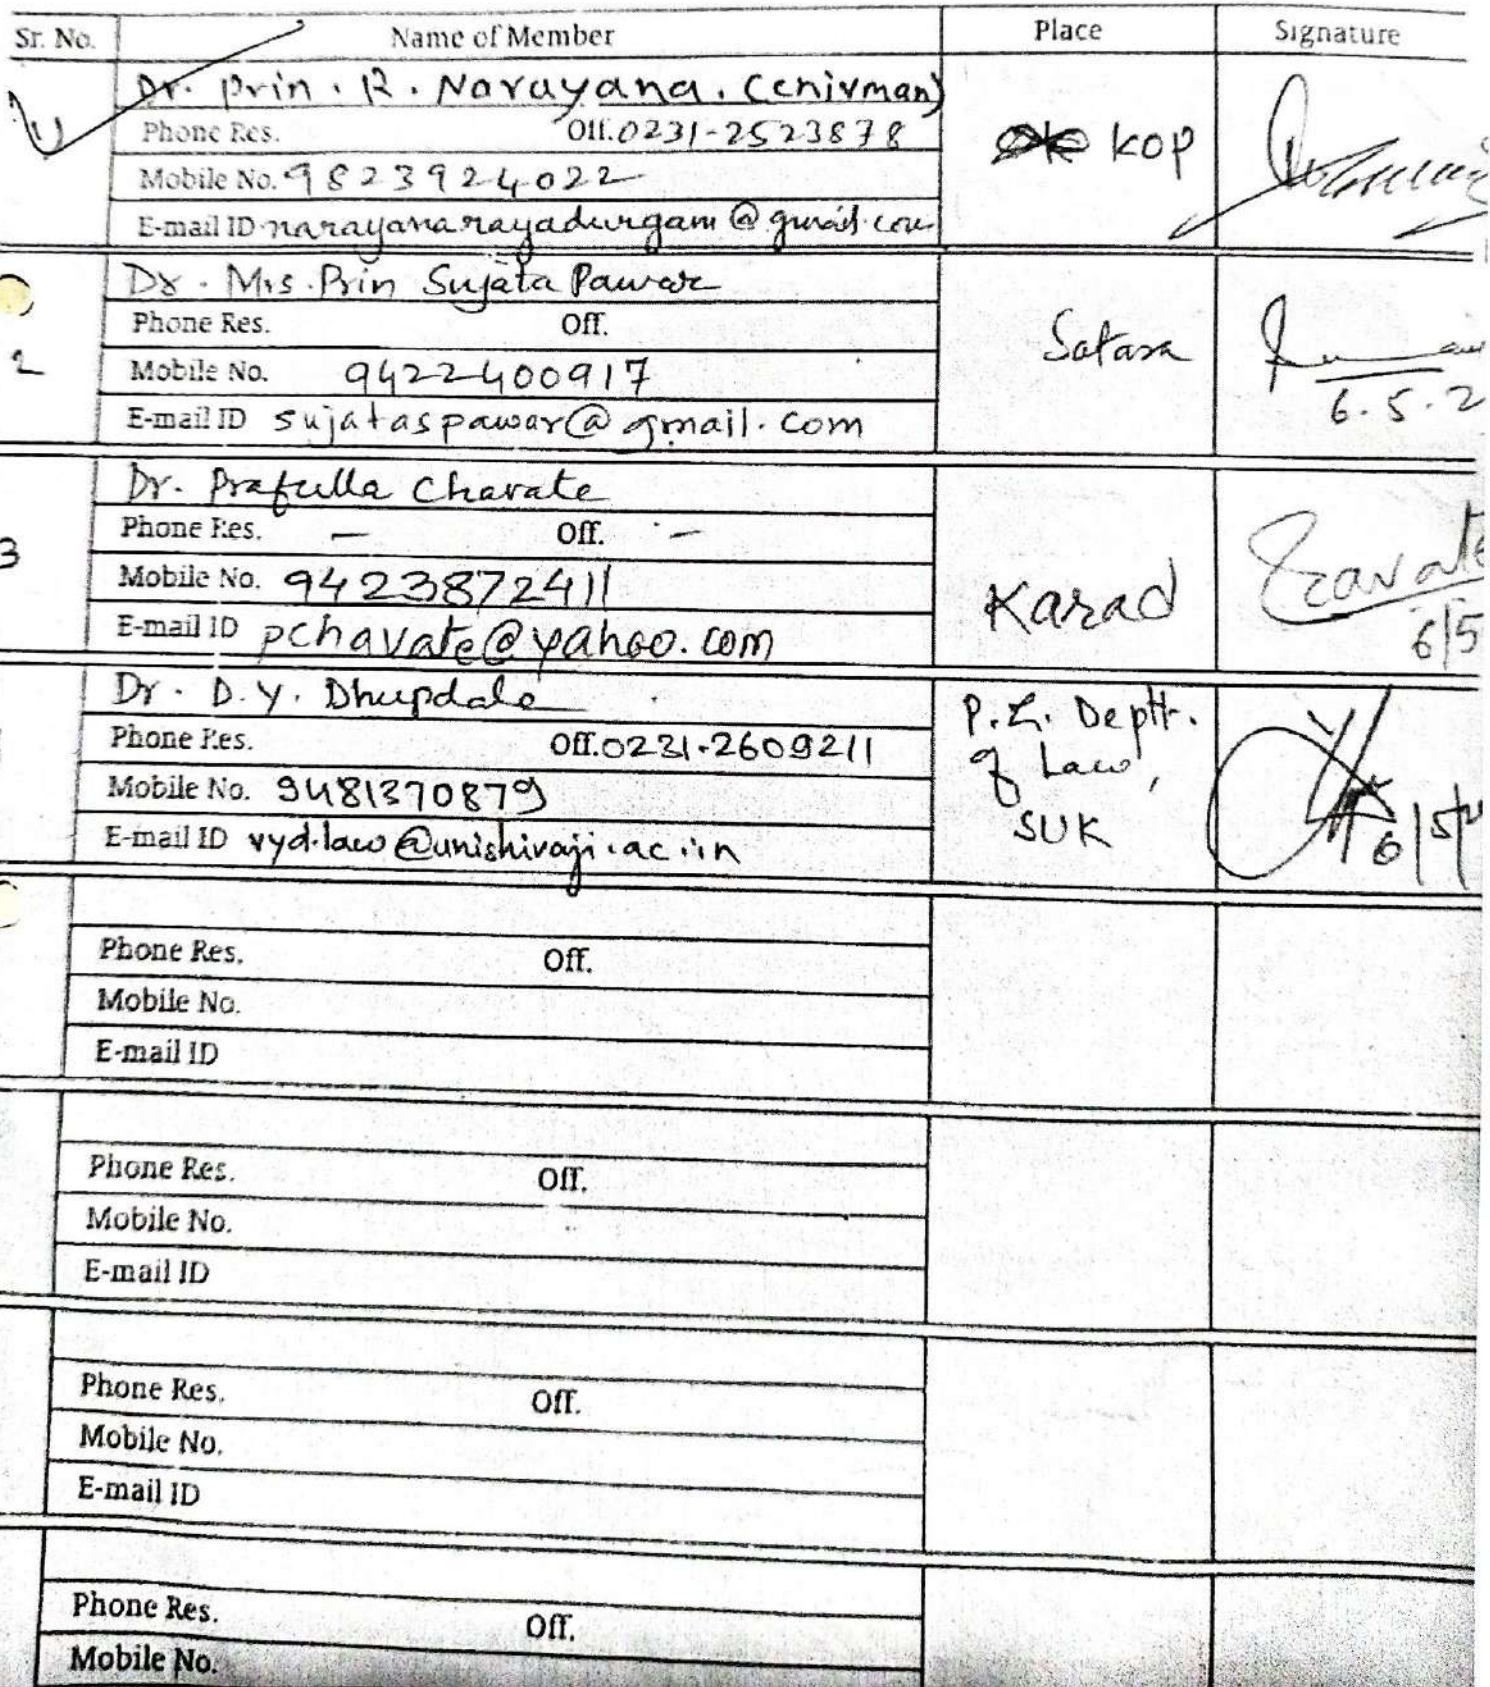 Sr. No. Name of Member Place Signature
Dr. Prin. R. Narayana. (Chirman)
Phone Res. Off. 0231-2523878
KOP
Mobile No. 9823924022
E-mail ID narayanarayadurgam@gmail.com
Dr. Mrs. Prin Sujata Pawar
Phone Res. Off.
2 Satara
Mobile No. 9422400917
6.5.2
E-mail ID sujataspawar@gmail.com
Dr. Prafulla Chavate
Phone Res. — Off. —
3 Mobile No. 9423872411
Karad
6/5
E-mail ID pchavate@yahoo.com
Dr. D.Y. Dhupdale
P.G. Deptt.
Phone Res. Off. 0231-2609211
of Law,
Mobile No. 9481370879
SUK
E-mail ID vyd.law@unishivaji.ac.in
Phone Res. Off.
Mobile No.
E-mail ID
Phone Res. Off.
Mobile No.
E-mail ID
Phone Res. Off.
Mobile No.
E-mail ID
Phone Res. Off.
Mobile No.